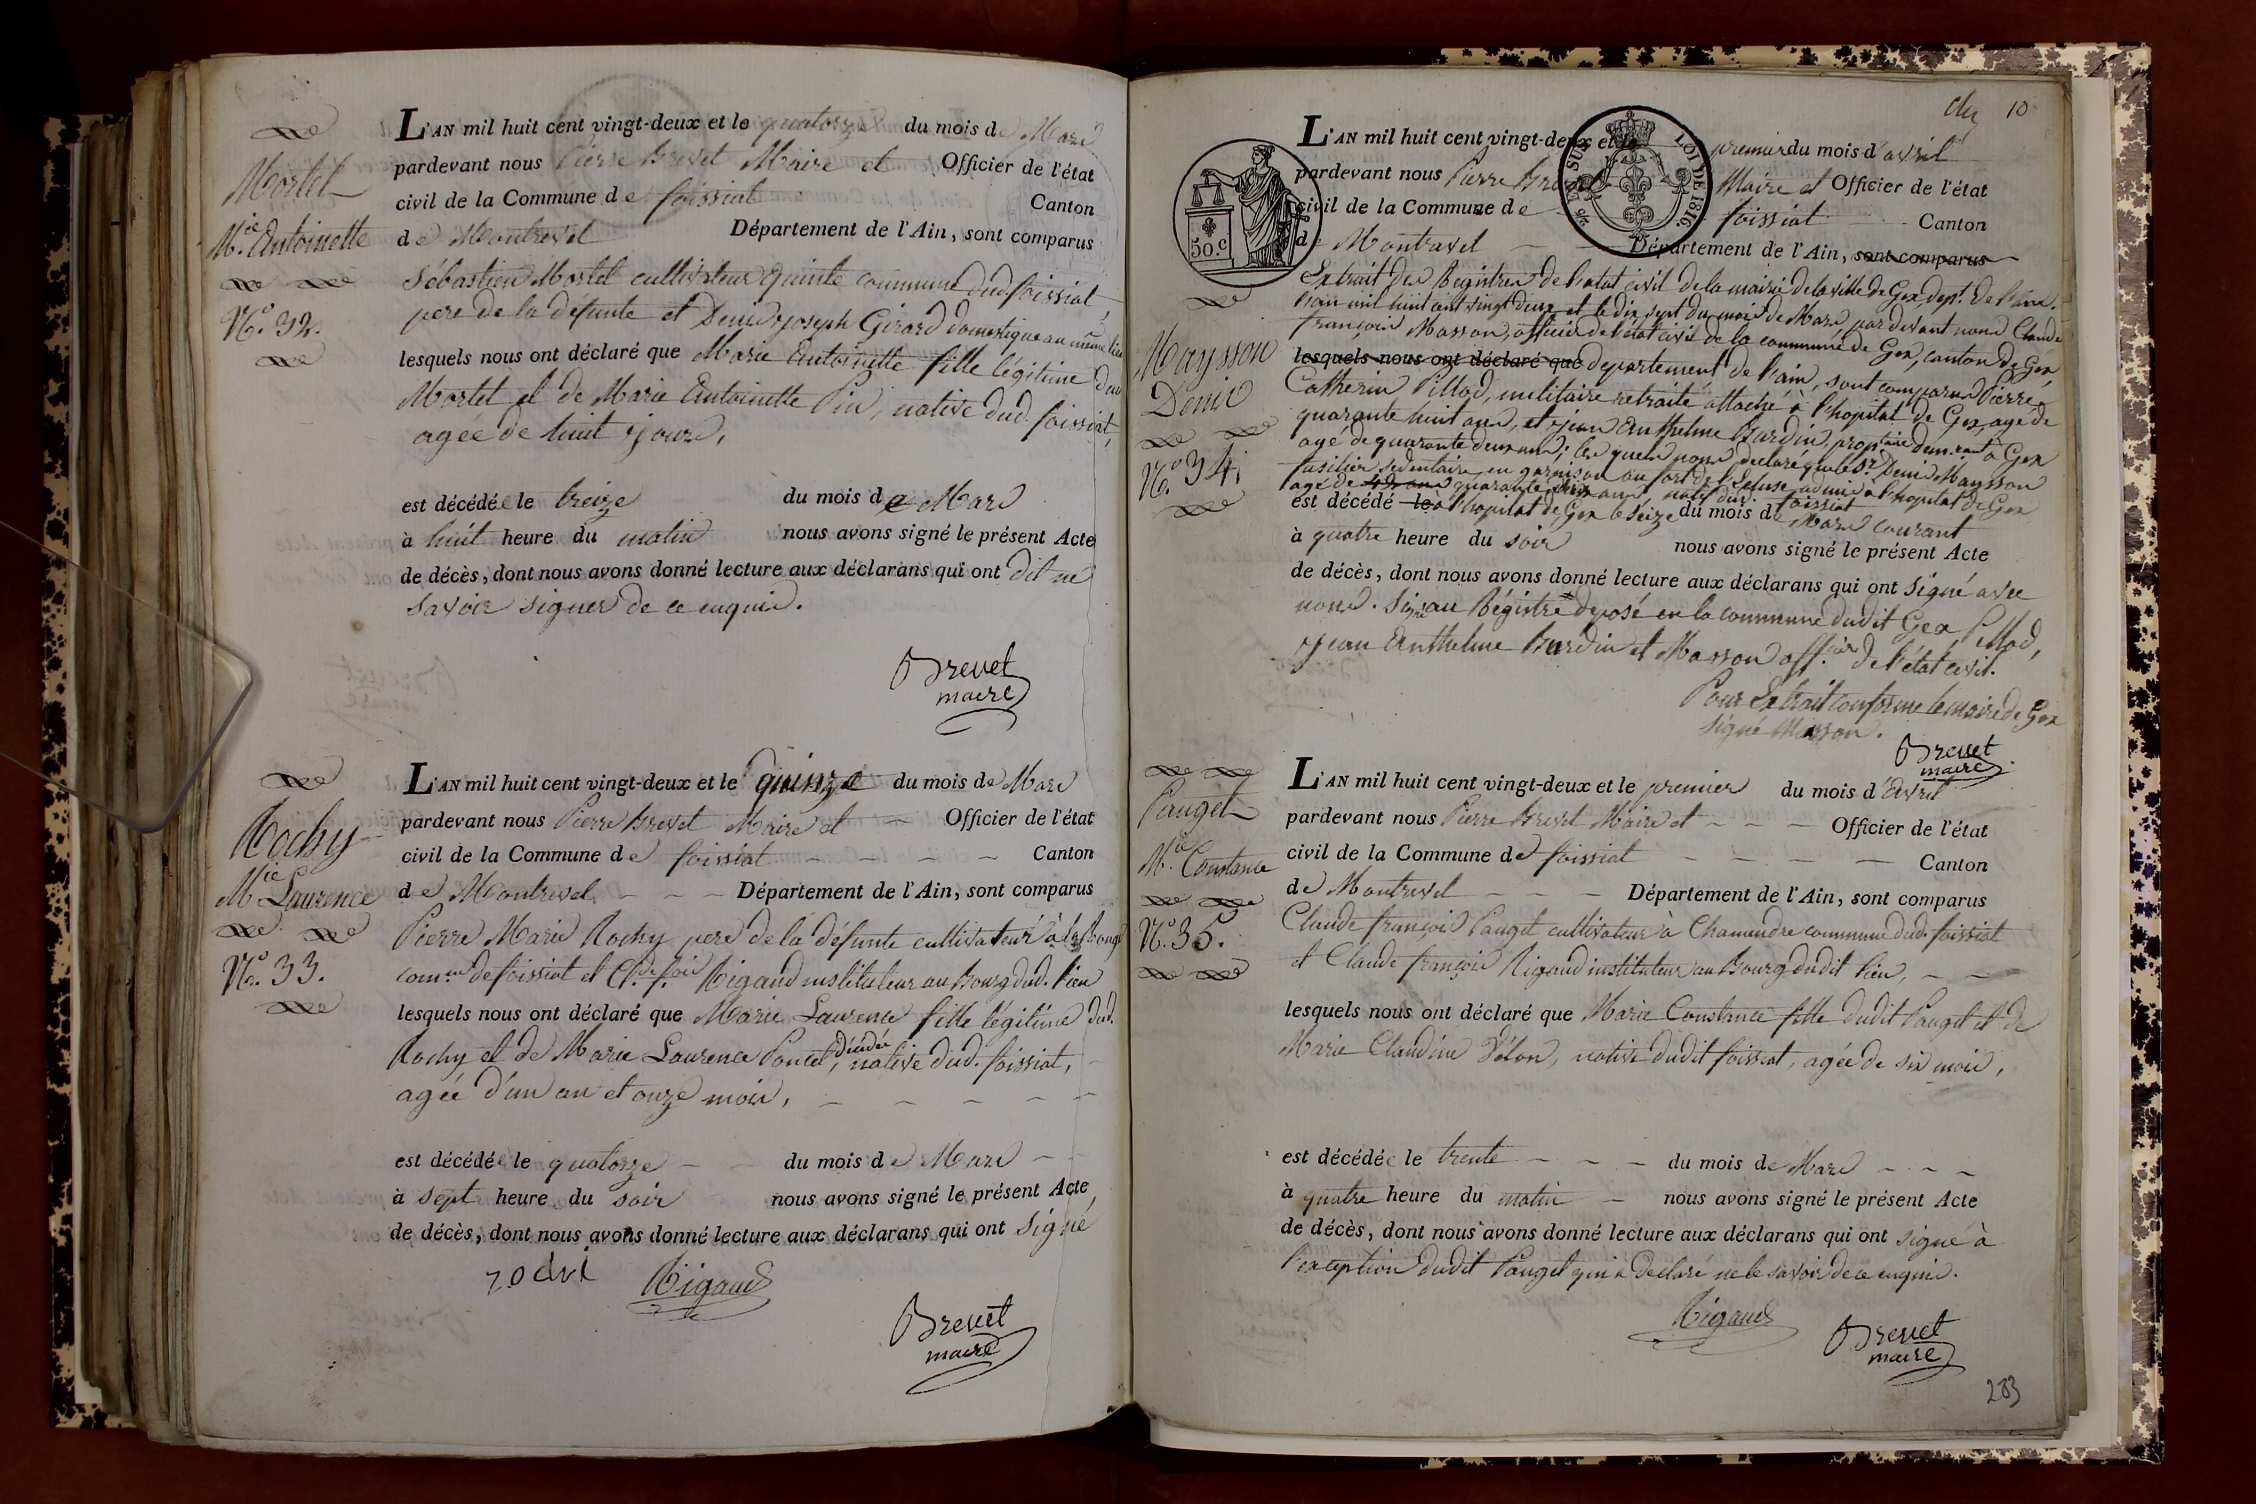 Mortet
M.ie Antoinette
N.o 32.
L'AN mil huit cent vingt-deux et le quatorze du mois de Mars
pardevant nous Pierre Brevet Maire et Officier de l'état
civil de la Commune de foissiat Canton
de Montrevel Département de l'Ain, sont comparus
Sébastien Mortet cultivateur commune dud. foissiat,
pere de la défunte et Denis joseph Girard domestique au même lieu
lesquels nous ont déclaré que Marie Antoinette fille légitime dud.
Mortet et de Marie Antoinette Pin, native dud. foissiat,
agée de huit jours,
est décédée le treize du mois de Mars
à huit heure du matin nous avons signé le présent Acte
de décès, dont nous avons donné lecture aux déclarans qui ont dit ne
savoir signer de ce enquis.
Brevet
maire
Rochy
M.ie Laurence
N.o 33.
L'AN mil huit cent vingt-deux et le quinze du mois de Mars
pardevant nous Pierre Brevet Maire et Officier de l'état
civil de la Commune de foissiat Canton
de Montrevel Département de l'Ain, sont comparus
Pierre Marie Rochy pere de la défunte cultivateur à
com.ne de foissiat et Cl.de f.ois Rigaud instituteur au Bourg dud. lieu
lesquels nous ont déclaré que Marie Laurence fille légitime dud.
Rochy et de Marie Laurence Poncet, décédée, native dud. foissiat,
agée d'un an et onze mois,
est décédée le quatorze du mois de Mars
à sept heure du soir nous avons signé le présent Acte
de décès, dont nous avons donné lecture aux déclarans qui ont signé
Rigaud
Brevet
maire
10
50.c
LOI DE 1816.
L'AN mil huit cent vingt-deux et le premier du mois d'avril
pardevant nous Pierre Brevet Maire et Officier de l'état
civil de la Commune de foissiat Canton
de Montrevel Département de l'Ain, sont comparus
Maysson
Denis
N.o 34.
Extrait des Registres de l'état civil de la mairie de la ville de Gex, dept. de l'ain.
L'an mil huit cent vingt deux et le dix sept du mois de Mars, par devant nous Claude
françois Masson, officier de l'état civil de la commune de Gex, canton de Gex,
lesquels nous ont déclaré que departement de l'ain, sont comparus Pierre
Catherin Pillod, militaire retraité attaché à l'hopital de Gex, agé de
quarante huit ans, et jean Anthelme Burdin, prop.taire dem.rant à Gex
agé de quarante deux ans; les quels nous declaré que le S.r Denis Maysson
fusilier sédentaire en garnison au fort de l'Ecluse, admis à l'hopital de Gex
agé de quarante ans natif dud. foissiat
est décédé le à l'hopital de Gex le seize du mois de Mars courant
à quatre heure du soir nous avons signé le présent Acte
de décès, dont nous avons donné lecture aux déclarans qui ont signé avec
nous. Signé au Régistre déposé en la commune dudit Gex Pillod,
jean Anthelme Burdin et Masson off.cier de l'état civil.
Pour Extrait conforme le maire de Gex
signé Masson.
Brevet
maire
Pauget
M.ie Constance
N.o 35.
L'AN mil huit cent vingt-deux et le premier du mois d'Avril
pardevant nous Pierre Brevet Maire et Officier de l'état
civil de la Commune de foissiat Canton
de Montrevel Département de l'Ain, sont comparus
Claude françois Pauget cultivateur à Chamandre commune dud. foissiat
et Claude françois Rigaud instituteur au Bourg dudit lieu,
lesquels nous ont déclaré que Marie Constance fille dudit Pauget et de
Marie Claudine Velon, native dudit foissiat, agée de six mois,
est décédée le trente du mois de Mars
à quatre heure du matin nous avons signé le présent Acte
de décès, dont nous avons donné lecture aux déclarans qui ont signé à
l'exception dudit Pauget qui a déclaré ne le savoir de ce enquis.
Rigaud
Brevet
maire
283